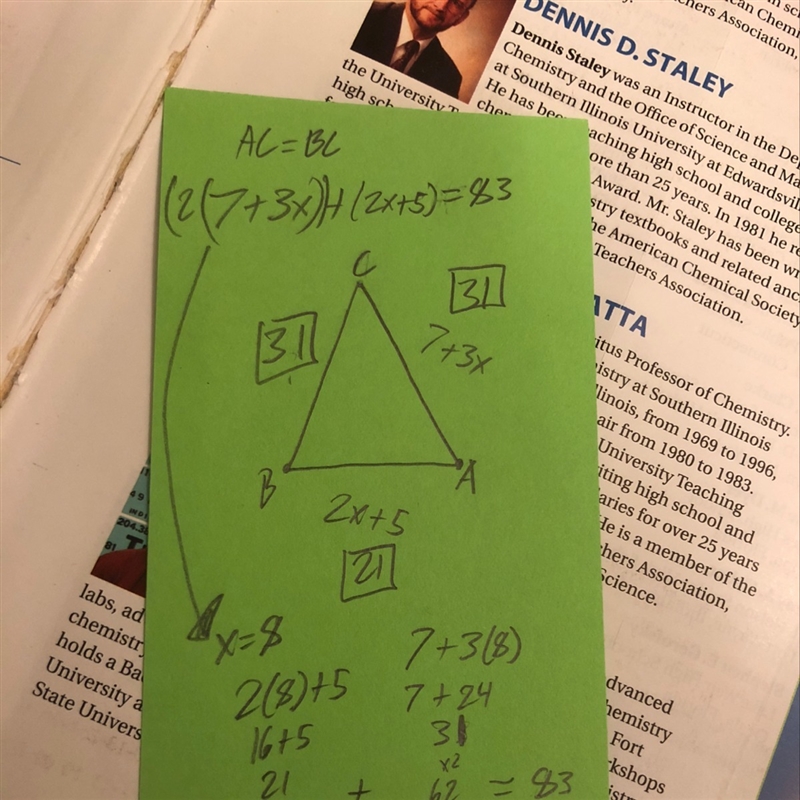 merican Chemi
achers Association,
DENNIS D. STALEY
Dennis Staley was an Instructor in the De
Chemistry and the Office of Science and Ma
at Southern Illinois University at Edwardsvil
He has been teaching high school and college
more than 25 years. In 1981 he re
Award. Mr. Staley has been wr
stry textbooks and related anc
he American Chemical Society
Teachers Association.
the University T
high sch
ATTA
itus Professor of Chemistry.
istry at Southern Illinois
llinois, from 1969 to 1996,
air from 1980 to 1983.
University Teaching
iting high school and
aries for over 25 years
He is a member of the
hers Association,
Science.
AC = BC
(2(7+3x))+(2x+5)=83
C
31
31
7+3x
B
A
2x+5
21
x=8
7+3(8)
2(8)+5
7+24
16+5
31
x2
21 + 62 = 83
204.3
81
labs, ad
chemistry
holds a Ba
University a
State Univers
dvanced
hemistry
Fort
kshops